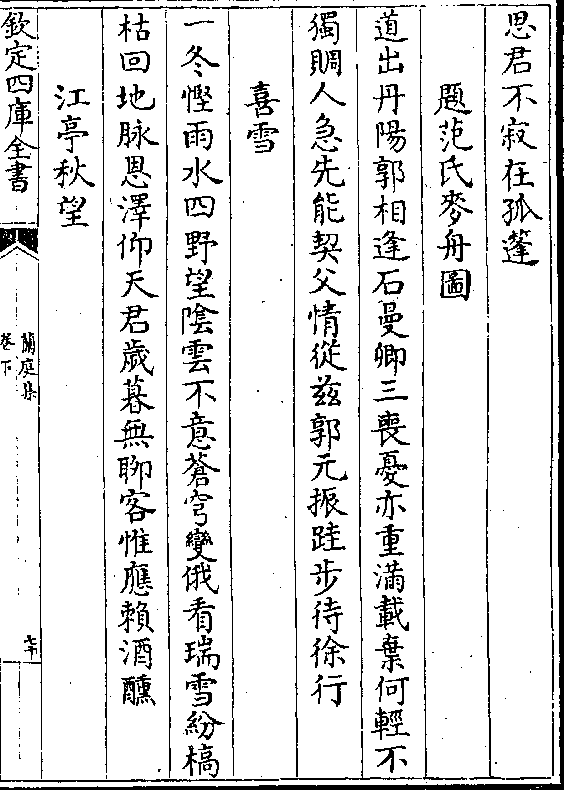 思君不寂在孤蓬
題范氏麥舟圖
道出丹陽郭相逢石曼卿三喪憂亦重滿載棄何輕不
獨賙人急先能契父情從兹郭元振跬步待徐行
喜雪
一冬慳雨水四野望陰雲不意蒼穹變俄看瑞雪紛槁
枯回地脉恩澤仰天君歲暮無聊客惟應賴酒醺
江亭秋望
欽定四庫全書
蘭庭集
卷下